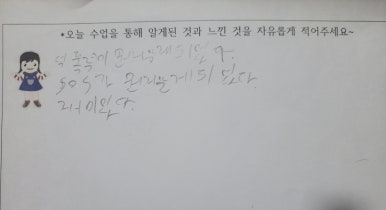 •오늘 수업을 통해 알게된 것과 느낀 것을 자유롭게 적어주세요~
뭔지알게 되었다.
SOS가 뭔지알게 되었다.
재미있다.